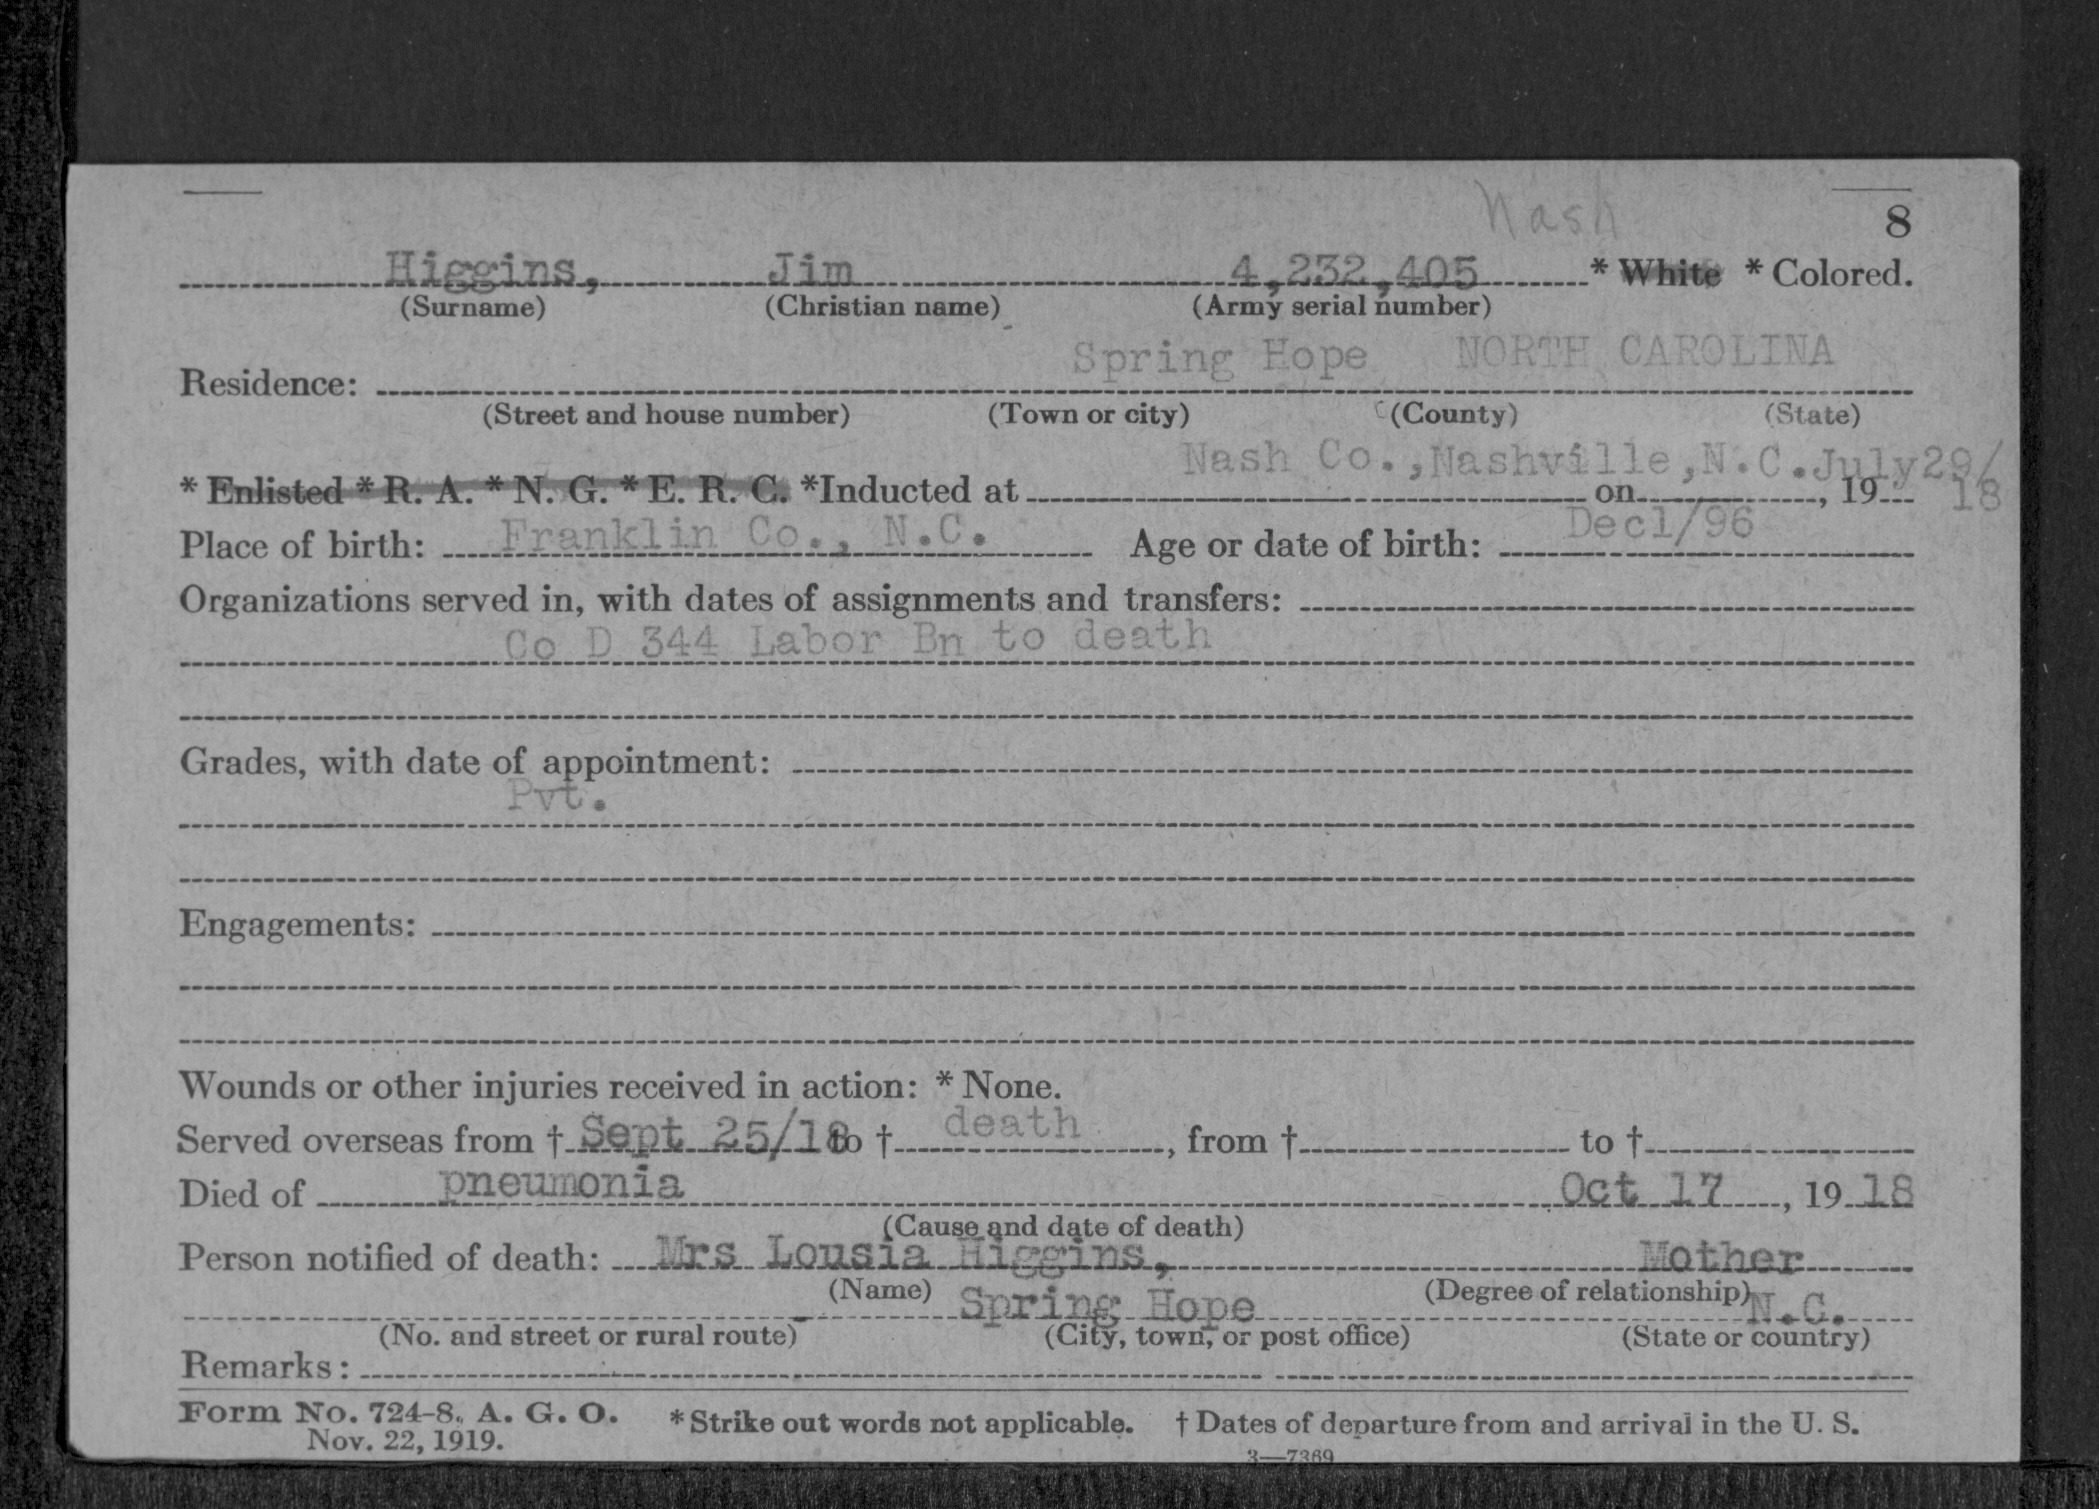 Nash
8
Higgins, Jim 4,232,405 * White * Colored.
(Surname) (Christian name) (Army serial number)
Spring Hope NORTH CAROLINA
Residence:
(Street and house number) (Town or city) (County) (State)
Nash Co.,Nashville,N.C.July29/
* Enlisted * R. A. * N. G. * E. R. C. *Inducted at on , 19 18
Place of birth: Franklin Co., N.C. Age or date of birth: Dec1/96
Organizations served in, with dates of assignments and transfers:
Co D 344 Labor Bn to death
Grades, with date of appointment:
Pvt.
Engagements:
Wounds or other injuries received in action: * None.
Served overseas from † Sept 25/18 to † death , from † to †
Died of pneumonia Oct 17 , 19 18
(Cause and date of death)
Person notified of death: Mrs Lousia Higgins, Mother
(Name) (Degree of relationship)
Spring Hope N.C.
(No. and street or rural route) (City, town, or post office) (State or country)
Remarks:
Form No. 724-8, A. G. O. * Strike out words not applicable. † Dates of departure from and arrival in the U. S.
Nov. 22, 1919.
3—7369